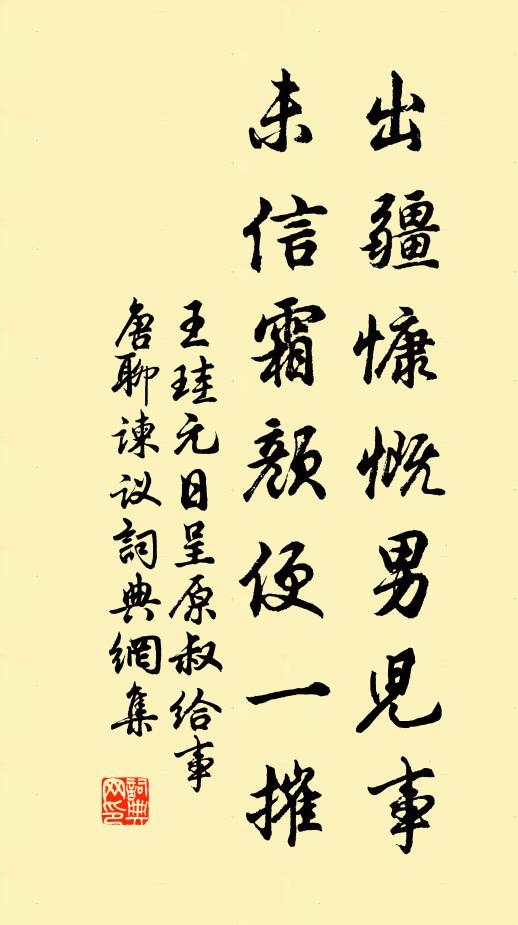 出疆慷慨男児事
未信霜顔便一摧
王珪元日呈原叔给事
唐聊谏议詞典網集
詞典
网印